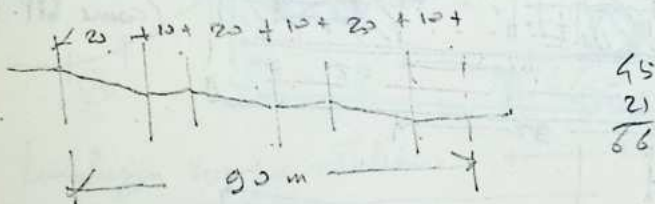 20 + 10 + 20 + 10 + 20 + 10 +
45
21
66
90 m